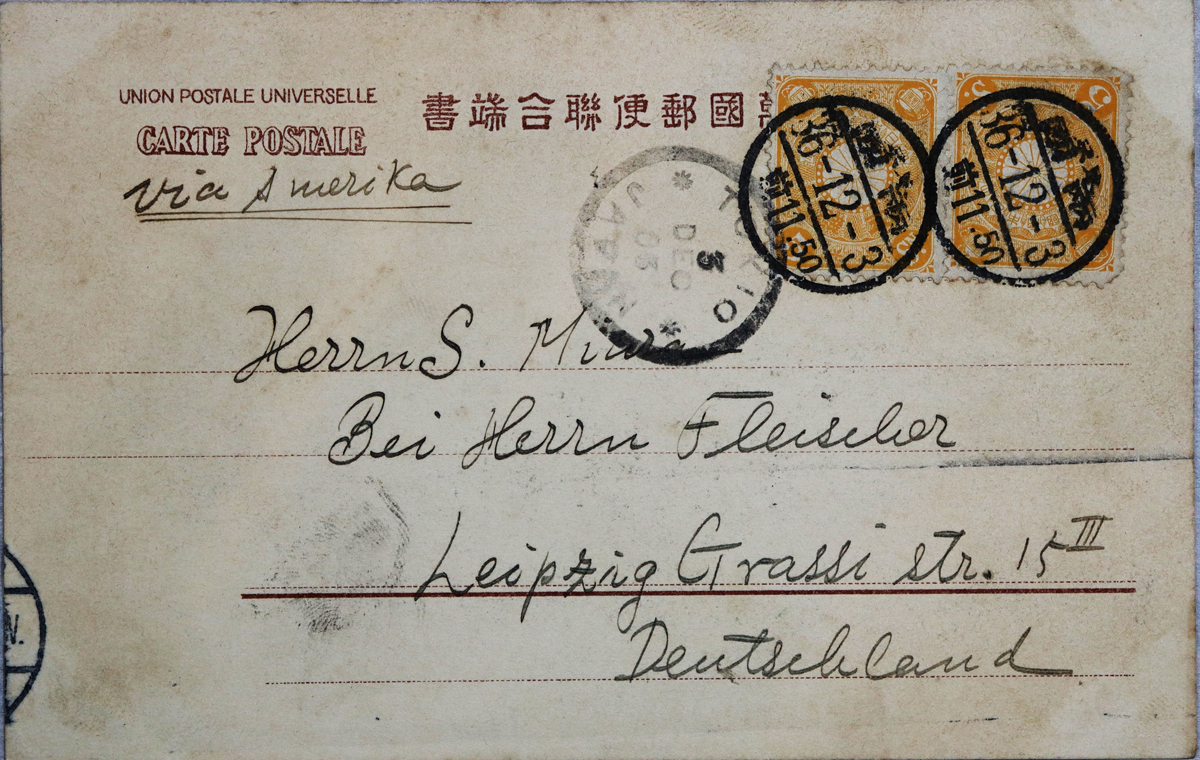 UNION POSTALE UNIVERSELLE
CARTE POSTALE
書端合聯便郵國
via Amerika
36-12-3
11.50
36-12-3
11.50
TOKIO
3
DEC
03
JAPAN
Herrn S. Miura
Bei Herrn Fleischer
Leipzig Grassi str. 15 III
Deutschland